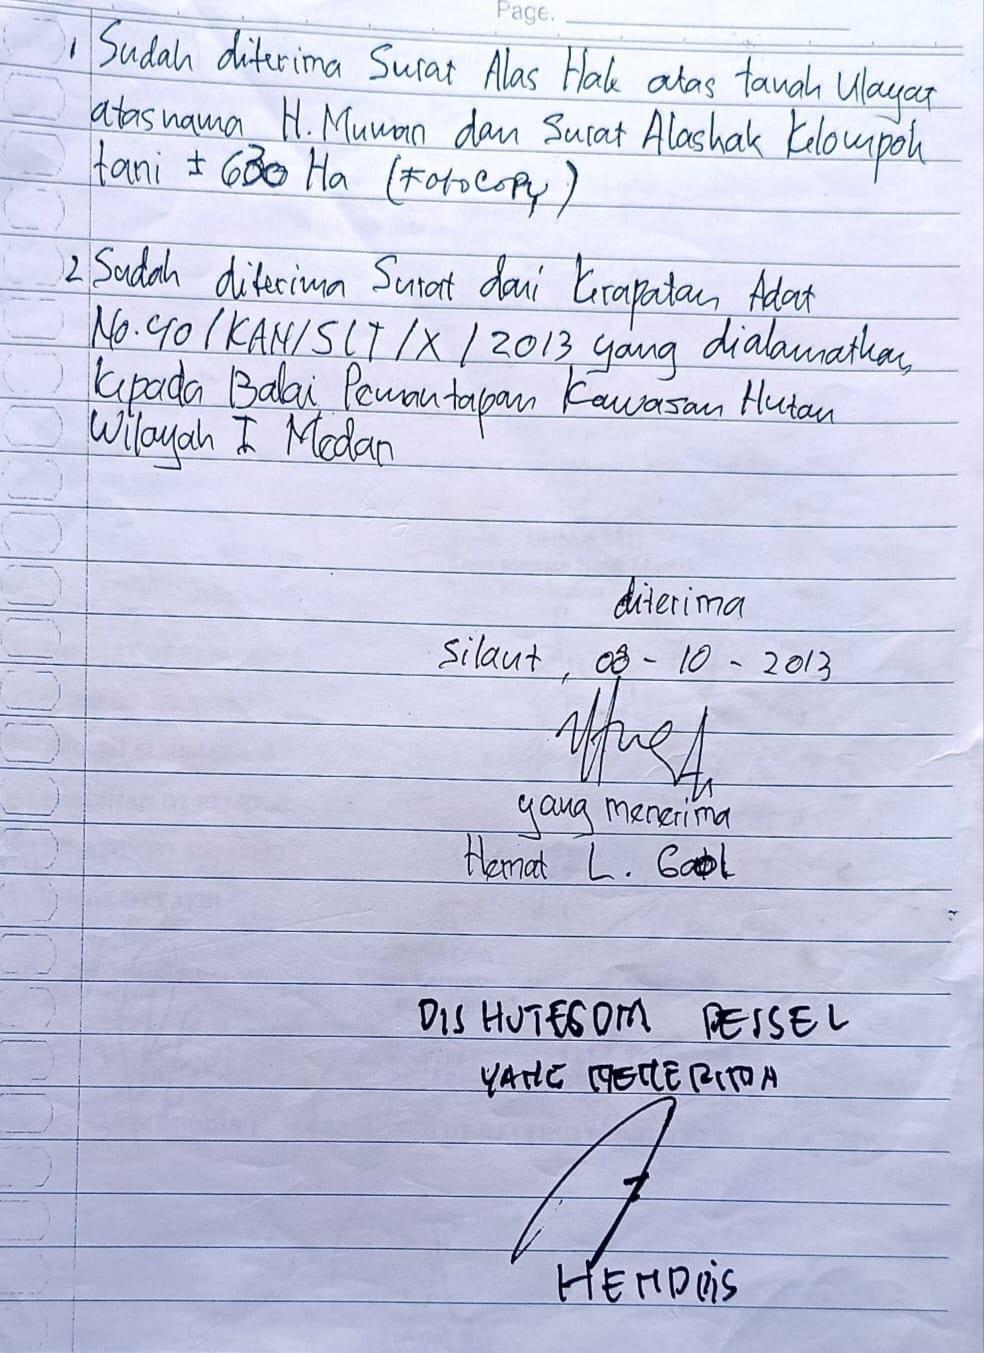 Page.
1 Sudah diterima Surat Alas Hak atas tanah Ulayat
atas nama H. Muwan dan Surat Alashak Kelompok
tani ± 630 Ha (Fotocopy)
2 Sudah diterima Surat dari Krapatan Adat
No. 90/KAN/SLT/X/2013 yang dialamatkan,
kepada Balai Pemantapan Kawasan Hutan
Wilayah I Medan
diterima
Silaut, 08-10-2013
yang menerima
Hemat L. Gaol
DISHUTESDM PESSEL
YANG MENERIMA